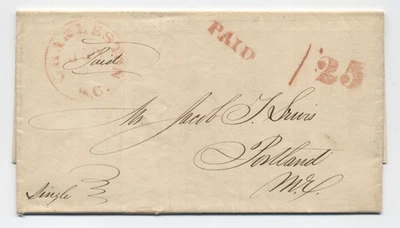 CHARLESTON
S.C.
Paid
PAID
25
Mr. Jacob T. Lewis
Portland
Me.
Single